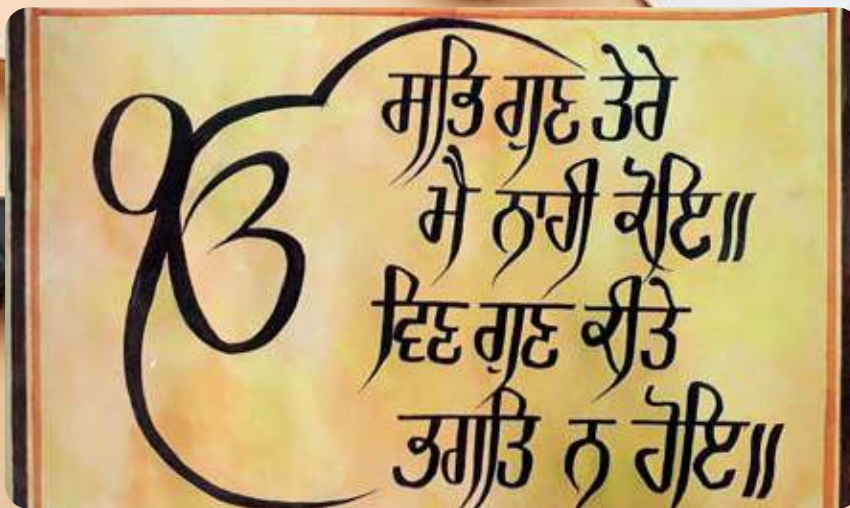 ੴ
ਸਭਿ ਗੁਣ ਤੇਰੇ
ਮੈ ਨਾਹੀ ਕੋਇ॥
ਵਿਣ ਗੁਣ ਕੀਤੇ
ਭਗਤਿ ਨ ਹੋਇ॥